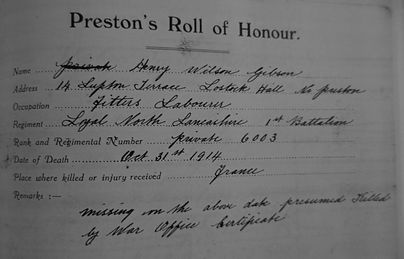 Preston's Roll of Honour.
Name Henry Wilson Gibson
Address 14 Lupton Terrace Lostock Hall Nr Preston
Occupation fitters Labourer
Regiment Loyal North Lancashire 1st Battalion
Rank and Regimental Number private 6003
Date of Death Oct 31st 1914
Place where killed or injury received France
Remarks :—
missing on the above date presumed Killed
by War Office Certificate